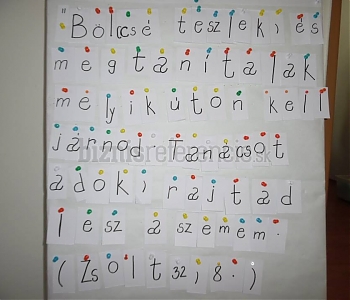 "Bölccsé teszlek, és
megtanítalak
melyikúton kell
járnod Tanácsot
adok, rajtad
lesz a szemem.
(Zsolt 32, 8.)